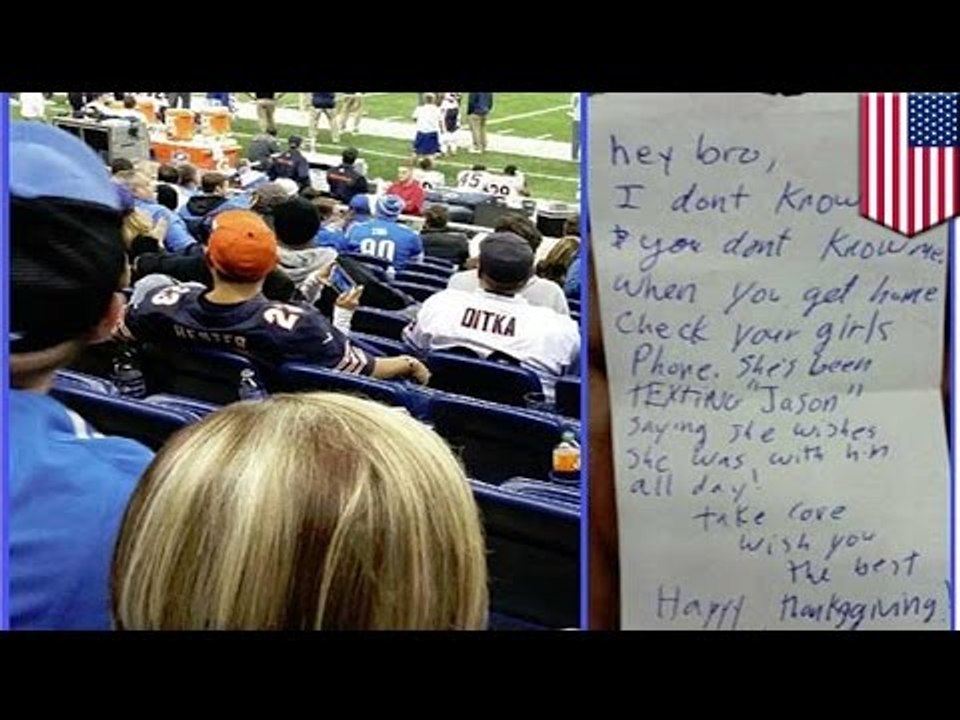 HESTER
23
DITKA
hey bro,
I dont know
& you dont know me.
When you get home
Check your girls
Phone. She's been
TEXTING "Jason"
Saying she wishes
She was with him
all day!
take care
wish you
the best
Happy Thanksgiving!